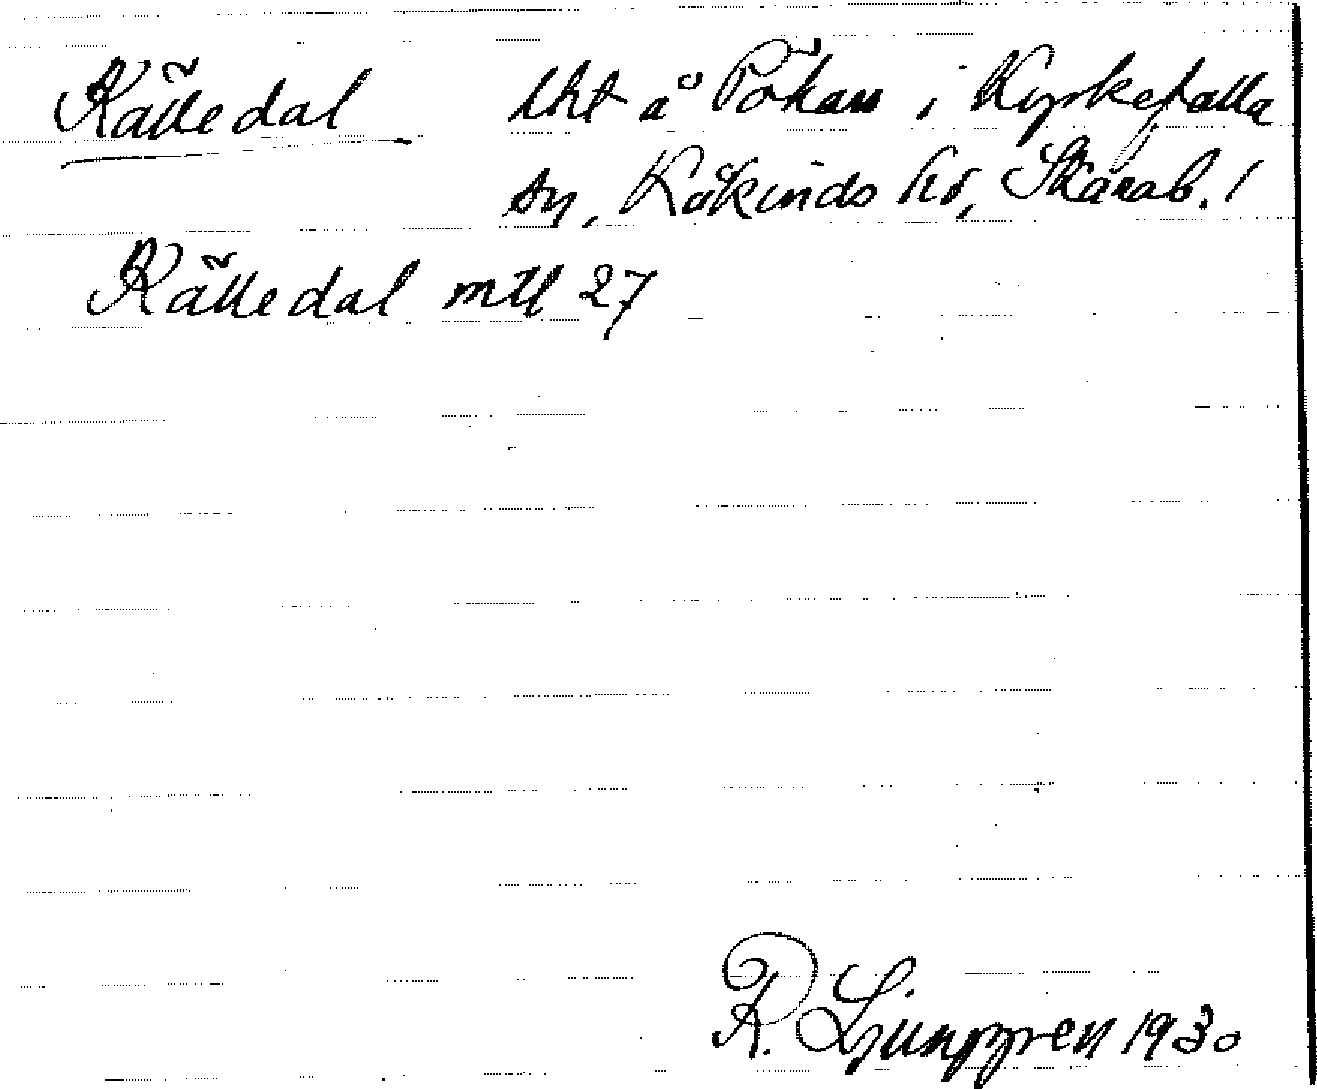 Källedal lht å Pökan i Kyrkefalla
sn, Kåkinds hd, Skarab. l
Källedal mtl 27
R. Ljunggren 1930